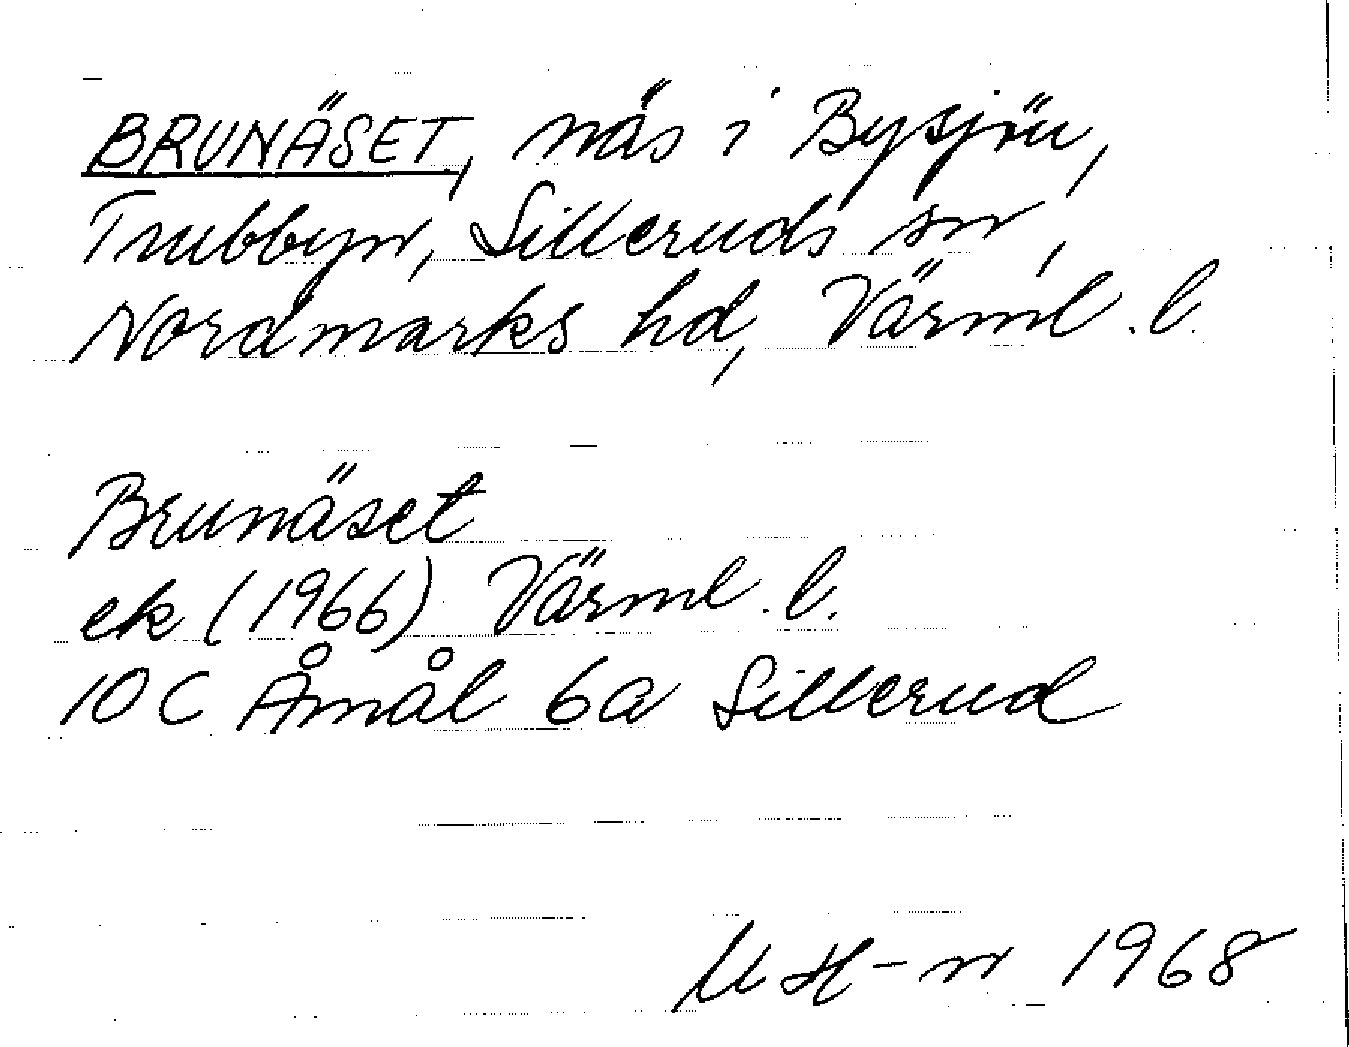 BRUNÄSET, näs i Bysjön,
Trubbyn, Silleruds sn,
Nordmarks hd, Värml. l.
Brunäset
ek (1966) Värml. l.
10C Åmål 6a Sillerud
M H-n 1968